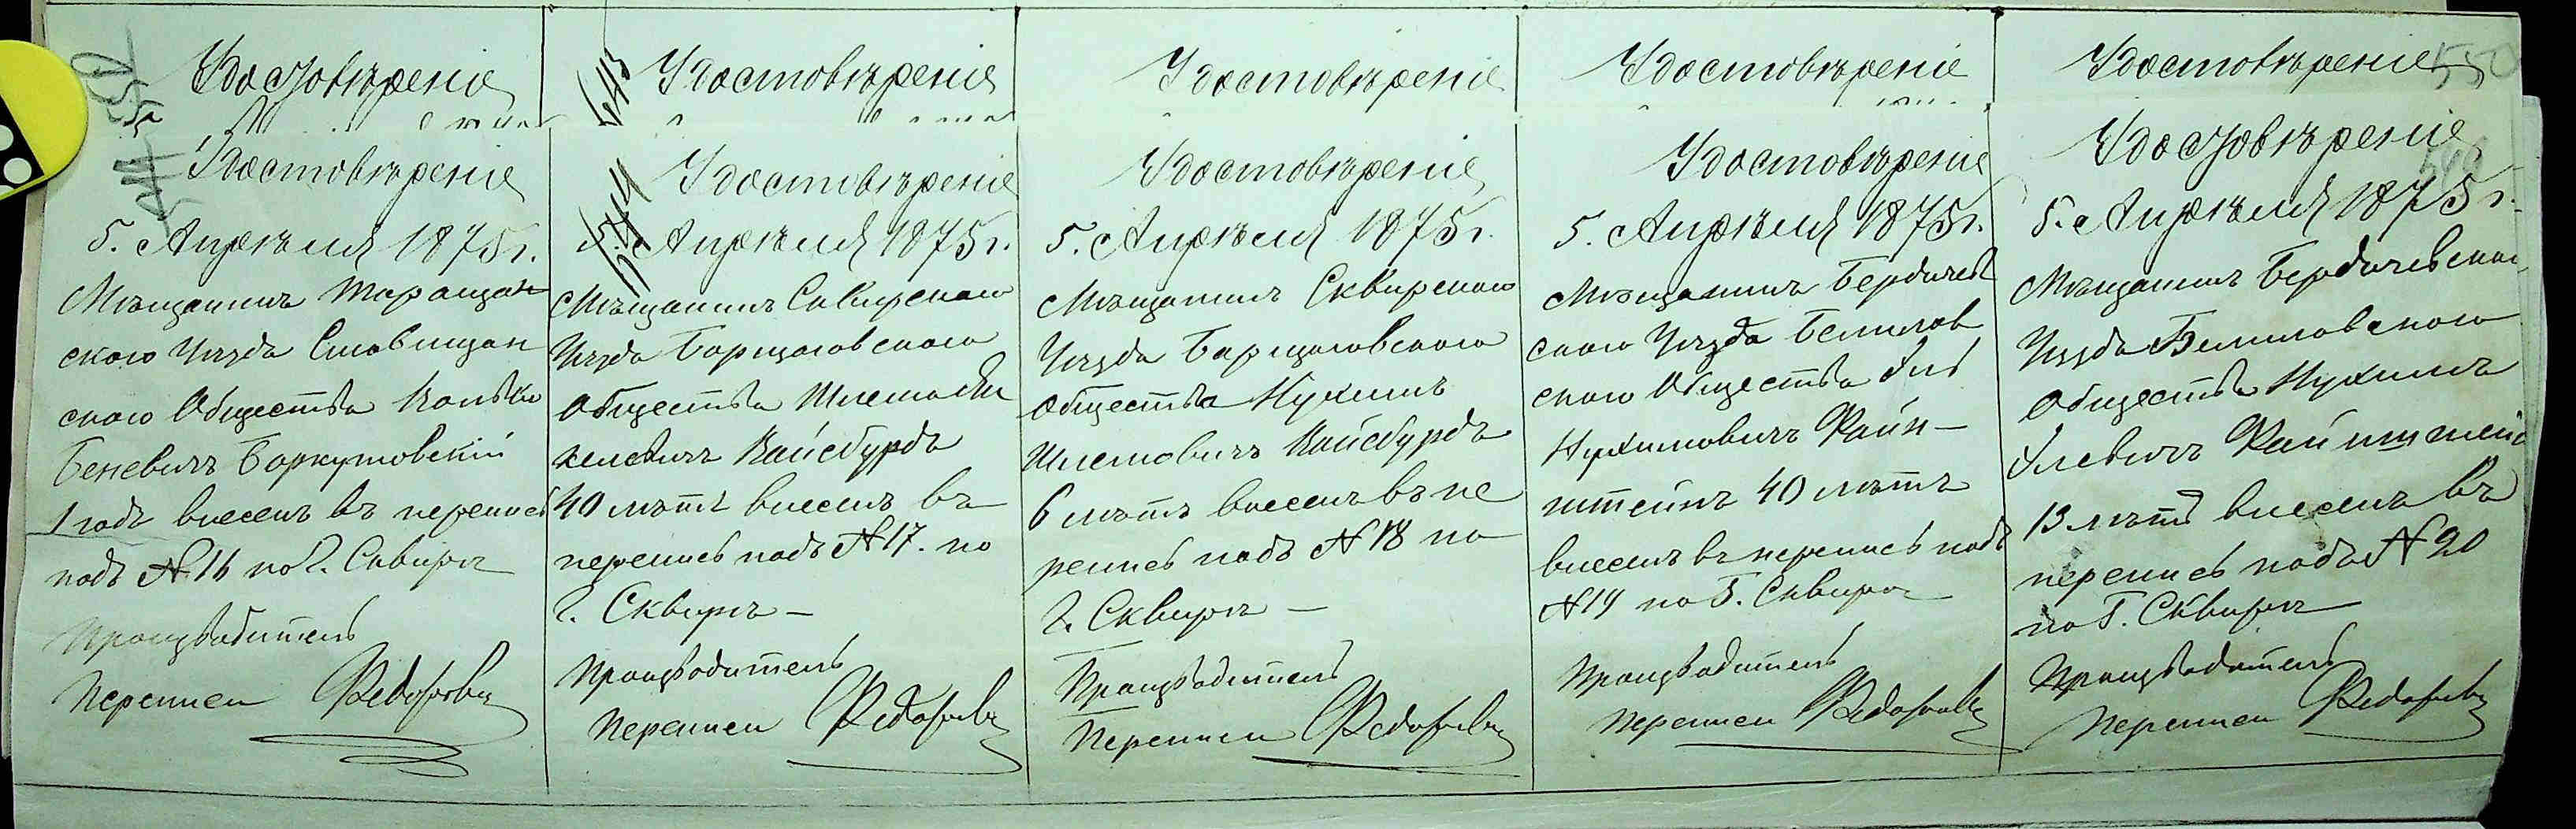 Удостовѣреніе
Удостовѣреніе
5. Апрѣля 1875 г.
Мѣщанинъ Таращан
скаго Уѣзда Ставищан
скаго Общества
Беневичъ Боркутовскій
1 годъ внесенъ въ перепись
подъ № 16 по г. Сквирѣ
Производитель
Переписи Федоровъ
643
Удостовѣреніе
644
Удостовѣреніе
5. Апрѣля 1875 г.
Мѣщанинъ Сквирскаго
Уѣзда Борщаговскаго
Общества
келевичъ Вайсбурдъ
40 лѣтъ внесенъ въ
перепись подъ № 17. по
г. Сквирѣ —
Производитель
Переписи Федоровъ
Удостовѣреніе
Удостовѣреніе
5. Апрѣля 1875 г.
Мѣщанинъ Сквирскаго
Уѣзда Борщаговскаго
Общества Нухимъ
Шлемовичъ Вайсбурдъ
6 лѣтъ внесенъ въ пе
репись подъ № 18 по
г. Сквирѣ —
Производитель
Переписи Федоровъ
Удостовѣреніе
Удостовѣреніе
5. Апрѣля 1875 г.
Мѣщанинъ Бердичев
скаго Уѣзда Белилов
скаго Общества
Нухимовичъ Файн-
штейнъ 40 лѣтъ
внесенъ въ перепись подъ
№ 19 по Г. Сквирѣ
Производитель
Переписи Федоровъ
Удостовѣреніе 550
Удостовѣреніе
5. Апрѣля 1875 г.
Мѣщанинъ Бердичевскаго
Уѣзда Белиловскаго
Общества Нухимъ
Улевичъ Файнштейнъ
13 лѣтъ внесенъ въ
перепись подъ № 20
по Г. Сквирѣ
Производитель
Переписи Федоровъ